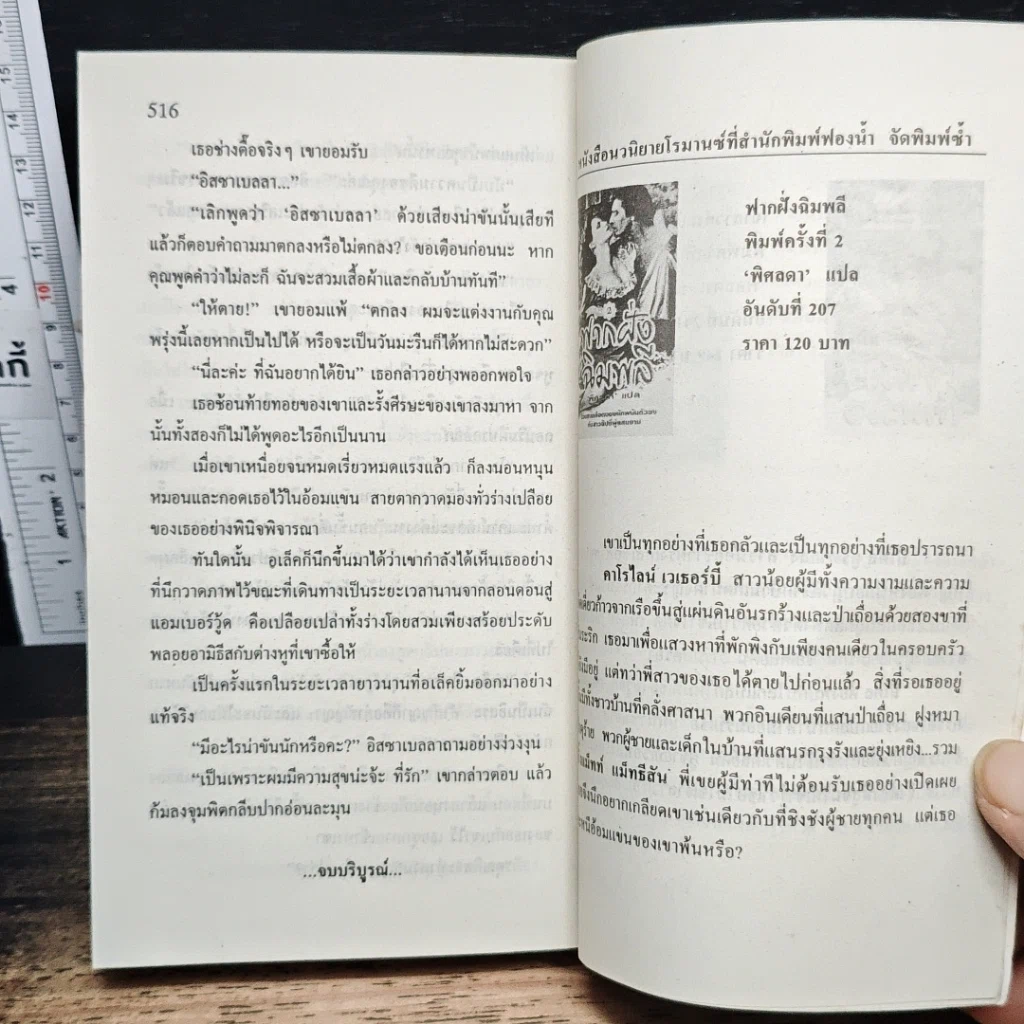 516
เธอช่างดื้อจริงๆ เขายอมรับ
“อิสซาเบลลา...”
“เลิกพูดว่า ‘อิสซาเบลลา’ ด้วยเสียงน่าขันนั้นเสียที
แล้วก็ตอบคำถามมาตกลงหรือไม่ตกลง? ขอเตือนก่อนนะ หาก
คุณพูดคำว่าไม่ละก็ ฉันจะสวมเสื้อผ้าและกลับบ้านทันที”
“ให้ตาย!” เขายอมแพ้ “ตกลง ผมจะแต่งงานกับคุณ
พรุ่งนี้เลยหากเป็นไปได้ หรือจะเป็นวันมะรืนก็ได้หากไม่สะดวก”
“นี่ละค่ะ ที่ฉันอยากได้ยิน” เธอกล่าวอย่างพออกพอใจ
เธอช้อนท้ายทอยของเขาและรั้งศีรษะของเขาลงมาหา จาก
นั้นทั้งสองก็ไม่ได้พูดอะไรอีกเป็นนาน
เมื่อเขาเหนื่อยจนหมดเรี่ยวหมดแรงแล้ว ก็ลงนอนหนุน
หมอนและกอดเธอไว้ในอ้อมแขน สายตากวาดมองทั่วร่างเปลือย
ของเธออย่างพินิจพิจารณา
ทันใดนั้น อเล็คก็นึกขึ้นมาได้ว่าเขากำลังได้เห็นเธออย่าง
ที่นึกวาดภาพไว้ขณะที่เดินทางเป็นระยะเวลานานจากลอนดอนสู่
แอมเบอร์วู้ด คือเปลือยเปล่าทั้งร่างโดยสวมเพียงสร้อยประดับ
พลอยอามิธีสกับต่างหูที่เขาซื้อให้
เป็นครั้งแรกในระยะเวลายาวนานที่อเล็คยิ้มออกมาอย่าง
แท้จริง
“มีอะไรน่าขันนักหรือคะ?” อิสซาเบลลาถามอย่างง่วงงุน
“เป็นเพราะผมมีความสุขน่ะจ้ะ ที่รัก” เขากล่าวตอบ แล้ว
ก้มลงจุมพิตกลีบปากอ่อนละมุน
...จบบริบูรณ์...
หนังสือนวนิยายโรมานซ์ที่สำนักพิมพ์ฟองน้ำ จัดพิมพ์ซ้ำ
ฟากฝั่งฉิมพลี
แปล
ฟากฝั่งฉิมพลี
พิมพ์ครั้งที่ 2
‘พิศลดา’ แปล
อันดับที่ 207
ราคา 120 บาท
เขาเป็นทุกอย่างที่เธอกลัวและเป็นทุกอย่างที่เธอปรารถนา
คาโรไลน์ เวเธอร์บี้ สาวน้อยผู้มีทั้งความงามและความ
เดี่ยวก้าวจากเรือขึ้นสู่แผ่นดินอันรกร้างและป่าเถื่อนด้วยสองขาที่
เธอมาเพื่อแสวงหาที่พักพิงกับเพียงคนเดียวในครอบครัว
มีอยู่ แต่ทว่าพี่สาวของเธอได้ตายไปก่อนแล้ว สิ่งที่รอเธออยู่
มีทั้งชาวบ้านที่คลั่งศาสนา พวกอินเดียนที่แสนป่าเถื่อน ฝูงหมา
ร้าย พวกผู้ชายและเด็กในบ้านที่แสนรกรุงรังและยุ่งเหยิง...รวม
แม็ทท์ แม็ทธีสัน พี่เขยผู้มีท่าทีไม่ต้อนรับเธออย่างเปิดเผย
จึงนึกอยากเกลียดเขาเช่นเดียวกับที่ชิงชังผู้ชายทุกคน แต่เธอ
หนีอ้อมแขนของเขาพ้นหรือ?
15
14
13
12
11
10
9
8
4
2
1